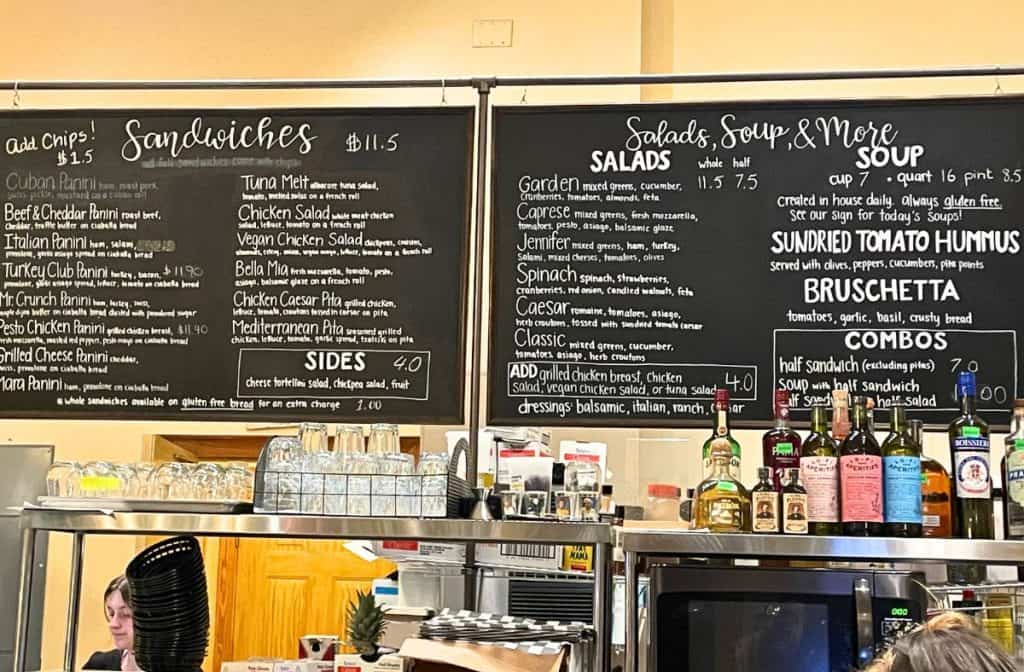 add Chips!
$1.5
Sandwiches $11.5
all full sandwiches come with chips
Cuban Panini ham, roast pork,
swiss, pickle, mustard on a cuban roll
Beef & Cheddar Panini roast beef,
cheddar, truffle butter on ciabatta bread
Italian Panini ham, salami,
provolone, garlic asiago spread on ciabatta bread
Turkey Club Panini turkey, bacon, $11.90
provolone, garlic asiago spread, lettuce, tomato on ciabatta bread
Mr. Crunch Panini ham, turkey, swiss,
maple dijon butter on ciabatta bread dusted with powdered sugar
Pesto Chicken Panini grilled chicken breast, $11.90
fresh mozzarella, roasted red peppers, pesto mayo on ciabatta bread
Grilled Cheese Panini cheddar,
swiss, provolone on ciabatta bread
Mara Panini ham, provolone on ciabatta bread
Tuna Melt albacore tuna salad,
tomato, melted swiss on a french roll
Chicken Salad white meat chicken
salad, lettuce, tomato on a french roll
Vegan Chicken Salad chickpeas, craisins,
almonds, celery, onion, vegan mayo, lettuce, tomato on a french roll
Bella Mia fresh mozzarella, tomato, pesto,
asiago, balsamic glaze on a french roll
Chicken Caesar Pita grilled chicken,
lettuce, tomato, croutons tossed in caesar on pita
Mediterranean Pita seasoned grilled
chicken, lettuce, tomato, garlic spread, tzatziki on pita
SIDES 4.0
cheese tortellini salad, chickpea salad, fruit
whole sandwiches available on gluten free bread for an extra charge 1.00
Salads, Soup, & More
SALADS whole half
11.5 7.5
Garden mixed greens, cucumber,
cranberries, tomatoes, almonds, feta
Caprese mixed greens, fresh mozzarella,
tomatoes, pesto, asiago, balsamic glaze
Jennifer mixed greens, ham, turkey,
salami, mixed cheeses, tomatoes, olives
Spinach spinach, strawberries,
cranberries, red onion, candied walnuts, feta
Caesar romaine, tomatoes, asiago,
herb croutons, tossed with sundried tomato caesar
Classic mixed greens, cucumber,
tomatoes, asiago, herb croutons
ADD grilled chicken breast, chicken
salad, vegan chicken salad, or tuna salad 4.0
dressings: balsamic, italian, ranch, caesar
SOUP
cup 7 . quart 16 pint 8.5
created in house daily. always gluten free.
See our sign for today's soups!
SUNDRIED TOMATO HUMMUS
served with olives, peppers, cucumbers, pita points
BRUSCHETTA
tomatoes, garlic, basil, crusty bread
COMBOS
half sandwich (excluding pitas) 7.0
soup with half sandwich
half salad
BOISSIERE
PAMA
APERITIFS
APERITIFS
APERITIFS
MAMA